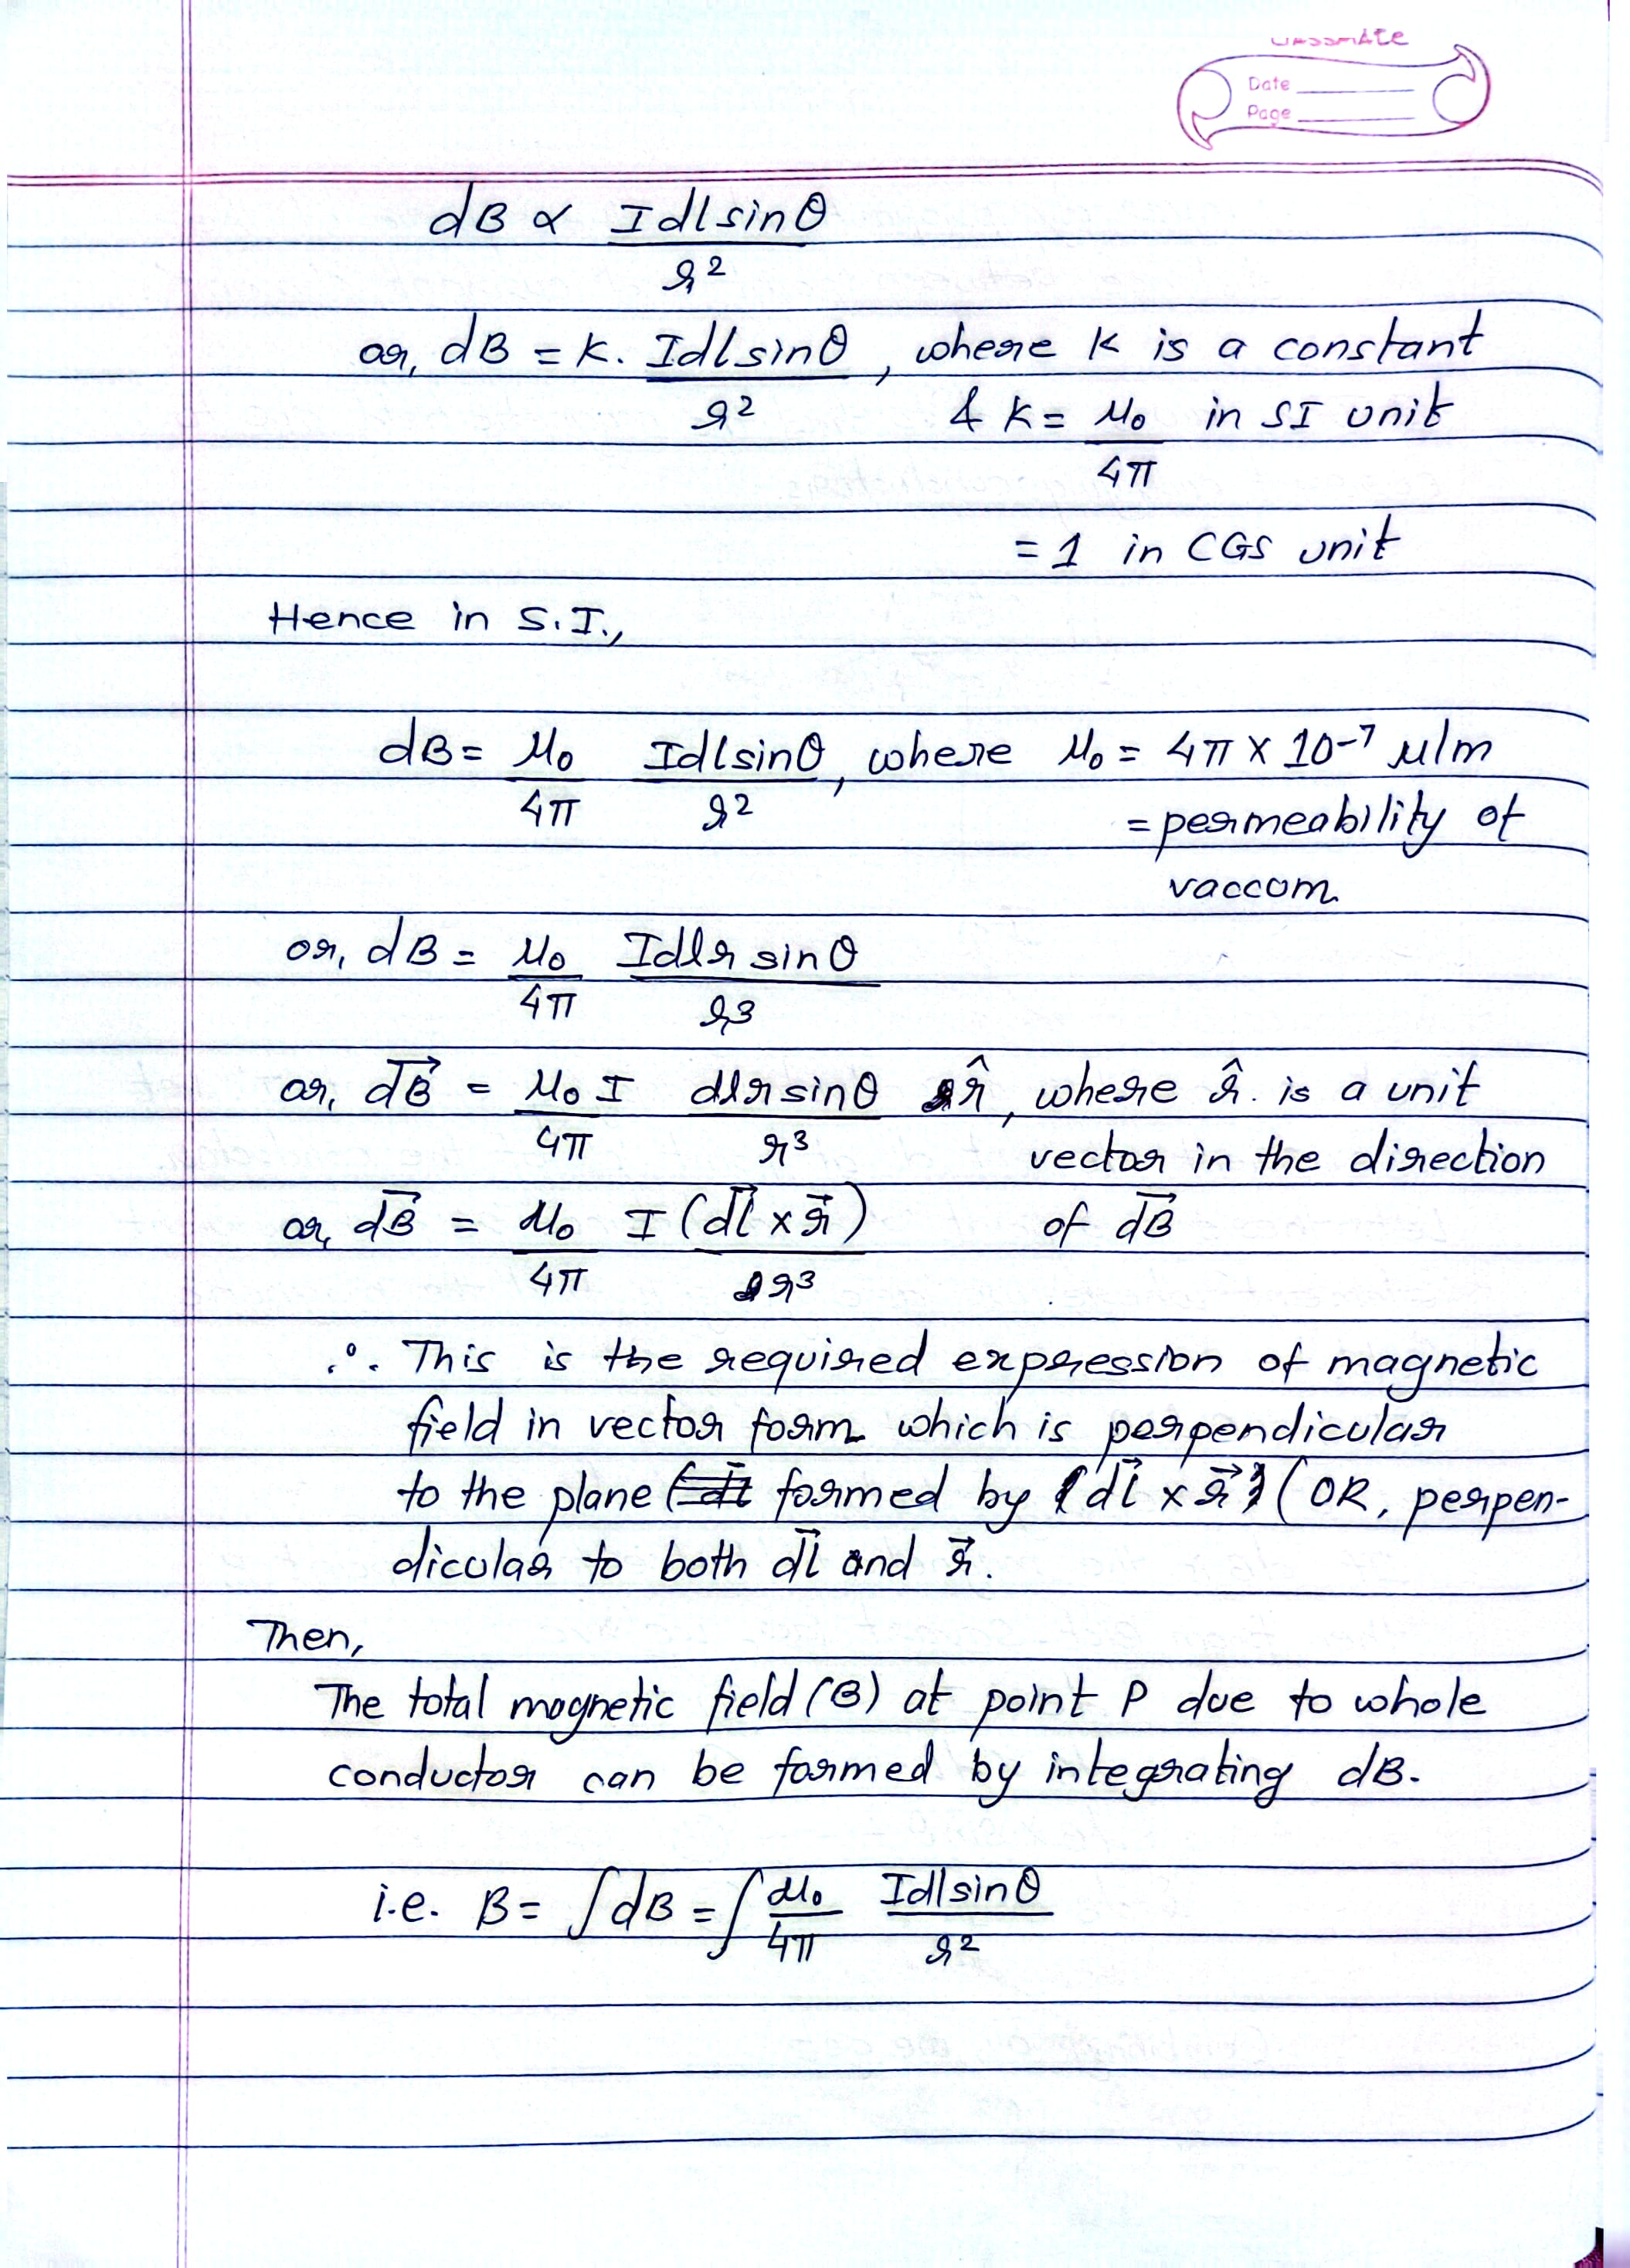 classmate
Date
Page
dB ∝ Idl sinθ / r²
or, dB = K. Idl sinθ / r², where K is a constant
& K = μ₀ / 4π in SI unit
= 1 in CGS unit
Hence in S.I.,
dB = μ₀ / 4π Idl sinθ / r², where μ₀ = 4π × 10⁻⁷ μ/m
= permeability of
vaccom
or, dB = μ₀ / 4π Idl r sinθ / r³
or, d⃗B = μ₀ I / 4π dl r sinθ / r³ r̂, where r̂. is a unit
vector in the direction
or, d⃗B = μ₀ / 4π I (d⃗l × r⃗) / r³ of d⃗B
∴ This is the required expression of magnetic
field in vector form which is perpendicular
to the plane formed by (d⃗l × r⃗) (OR, perpen-
dicular to both d⃗l and r⃗.
Then,
The total magnetic field (B) at point P due to whole
conductor can be formed by integrating dB.
i.e. B = ∫dB = ∫ μ₀ / 4π Idl sinθ / r²